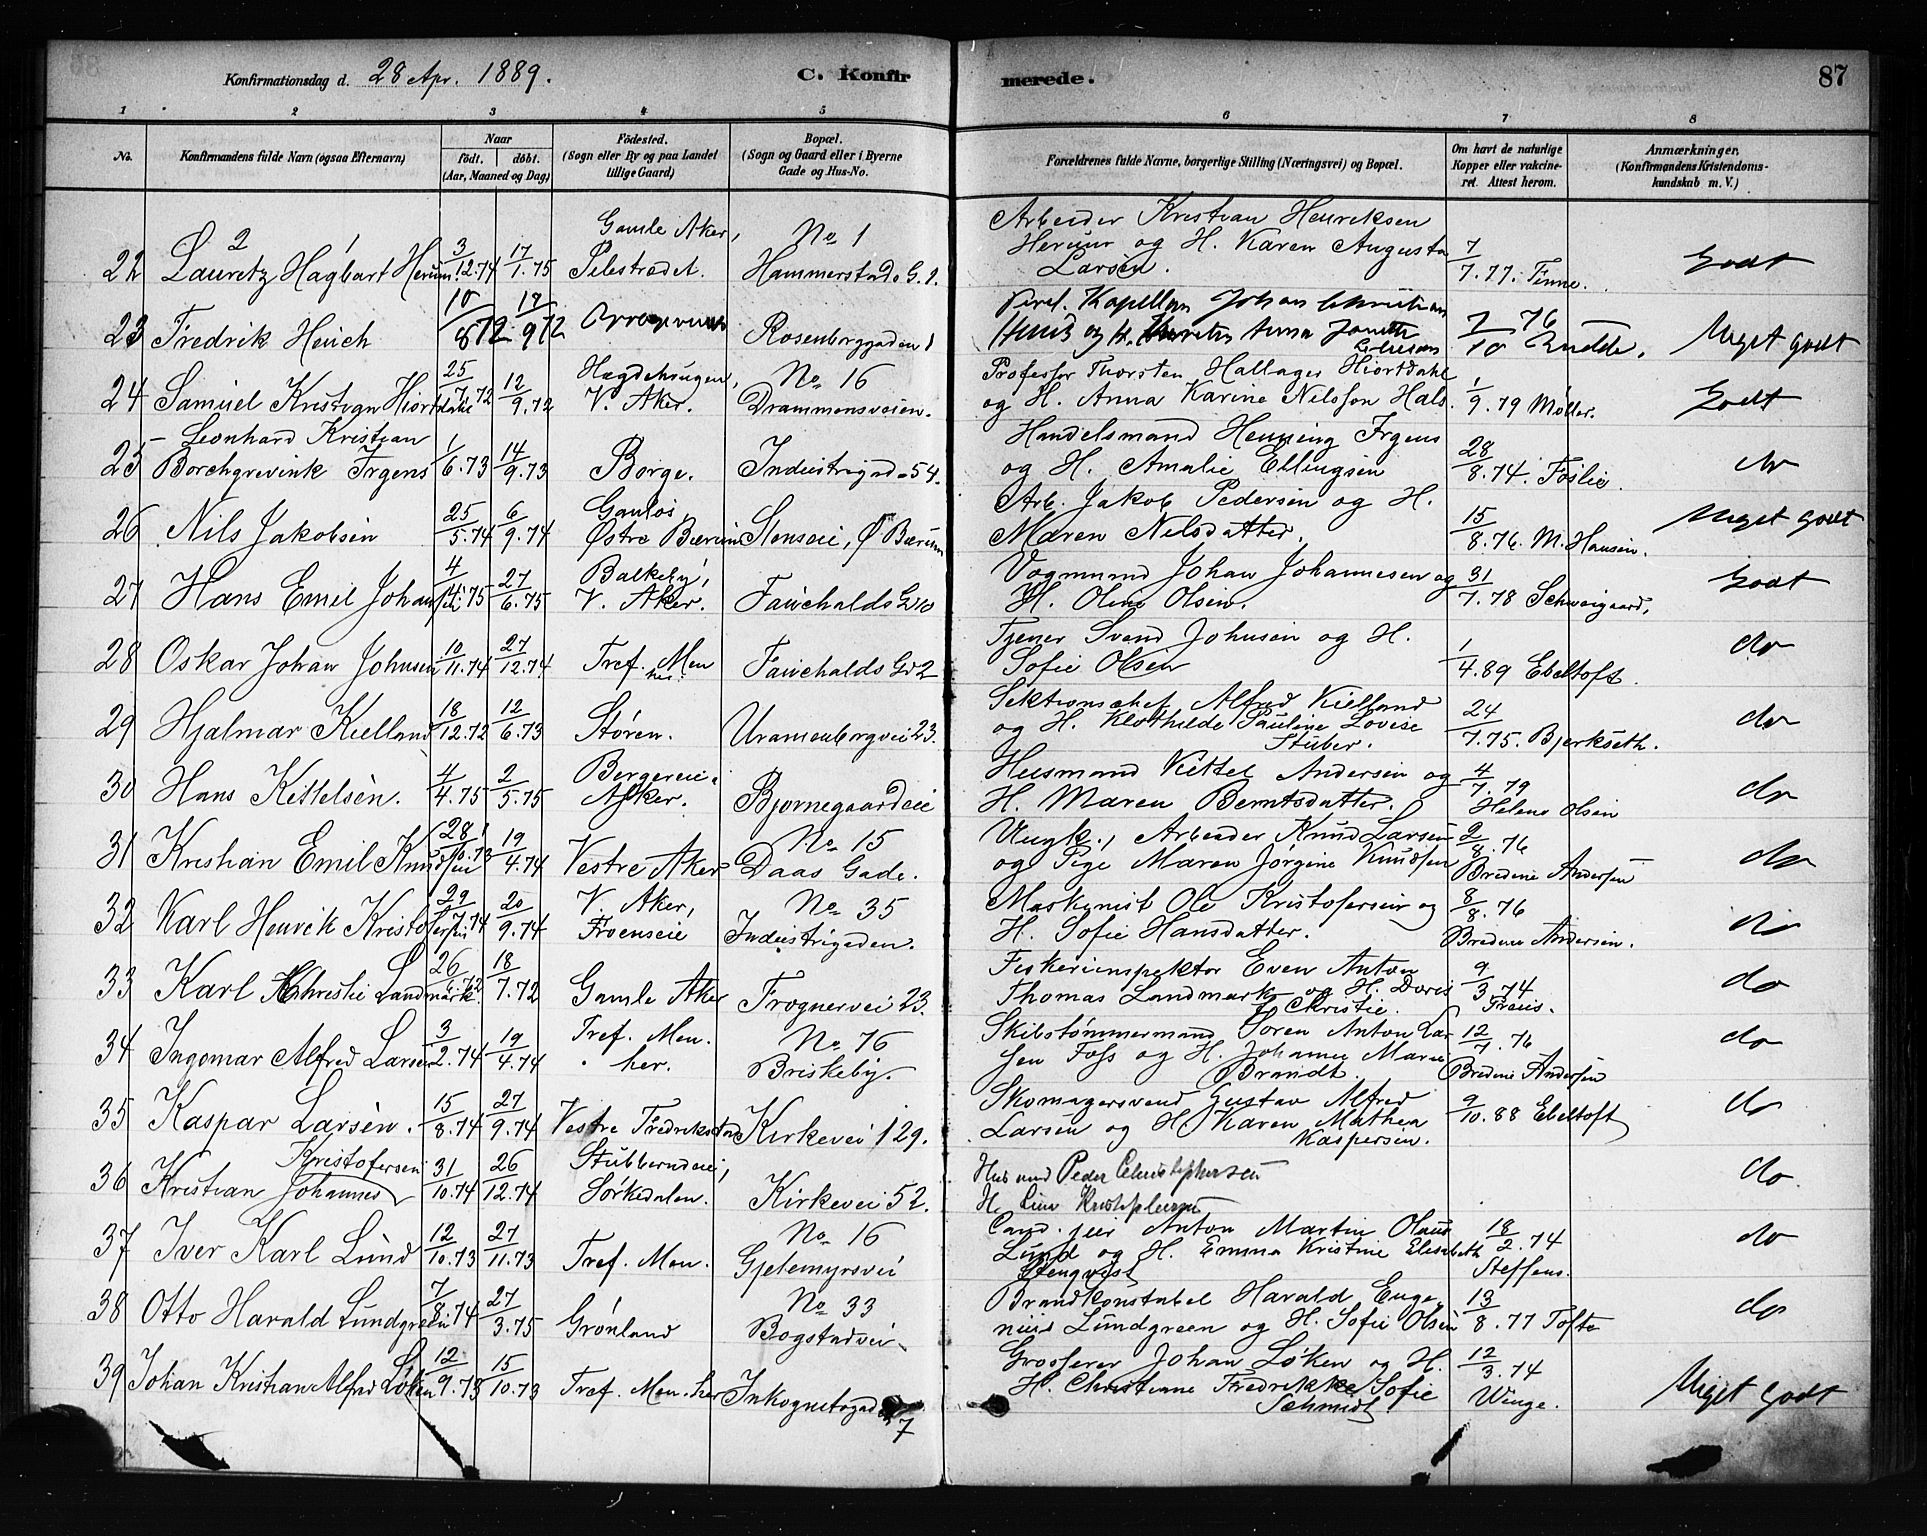 Konfirmationsdag d. 28 Apr. 1889. C. Konfirmerede. 87
1 2 3 4 5 6 7 8
No. Konfirmandens fulde Navn (ogsaa Efternavn) Naar født. døbt. (Aar, Maaned og Dag) Fødested. (Sogn eller By og paa Landet tillige Gaard) Bopæl. (Sogn og Gaard eller i Byerne Gade og Hus-No. Forældrenes fulde Navne, borgerlige Stilling (Næringsvei) og Bopæl. Om havt de naturlige Kopper eller vakcineret. Attest herom. Anmærkninger. (Konfirmandens Kristendomskundskab m. V.)
2 1 Gamle Aker, No 1 Arbeider Kristian Henriksen
22 Lauretz Hagbart Herum 3/12.74 17/1.75 Pilestrædet. Hammerstads G. 1. Herum og H. Karen Augusta Larsen. 7/7.77. Finne. Godt
23 Fredrik Heuch 10/8 72 19/9 72 Rosenborggaden 1 Kapellan Johan Christian Heuch og H. Anna 7/10 76 Meget godt
24 Samuel Kristian Hiortdahl 25/7.72 12/9.72 Hægdehaugen, V. Aker. No 16 Drammensveien. Professor Thorsten Hallager Hiortdahl
og H. Anna Karine Nilsson Hals. 1/9.79 Møller. Godt
25 Leonhard Kristian Borchgrevink Irgens 1/6.73 14/9.73 Borge. Industrigad. 54. Handelsmand Henning Irgens
og H. Amalie Ellingsen 28/8.74. Foslie. do
26 Nils Jakobsen 25/5.74 6/9.74 Østre Bærum Stenseie, Ø. Bærum Arb. Jakob Pedersen og H.
Maren Nilsdatter. 15/8.76. M. Hansen. Meget godt
27 Hans Emil Johansen 4/75 27/6.75 Balkeby, V. Aker. Fauchalds G 10 Vognmand Johan Johannesen og
H. Oline Olsen. 31/7.78 Schweigaard. Godt
28 Oskar Johan Johnsen 10/11.74 27/12.74 Tref. Men her. Fauchalds G 2 Tjener Svend Johnsen og H.
Sofie Olsen 1/4.89 Ebeltoft. do
29 Hjalmar Kielland 18/12.72 12/6.73 Støren. Uranienborgvei 23. Sektionschef Alfred Kielland
og H. Klothilde Pauline Lovise Stuber. 24/7.75. Bjerkseth. do
30 Hans Kittelsen. 4/4.75 2/5.75 Bergereie i Asker. Bjornegaardeie Husmand Kittel Andersen og
H. Maren Berntsdatter. 4/7.79 Helene Olsen do
31 Kristian Emil Knudsen 28/10.73 19/4.74 Vestre Aker No 15 Daas Gade. Ungk., Arbeider Knud Larsen
og Pige Maren Jørgine Knudsen 2/8.76 Bredine Andersen do
32 Karl Henrik Kristofersen 29/7.74 20/9.74 V. Aker, Frøenseie No 35 Industrigaden. Maskinist Ole Kristofersen og
H. Sofie Hansdatter. 8/8.76 Bredine Andersen. do
33 Karl Christie Landmark. 26/72 18/7.72 Gamle Aker Frognervei 23. Fiskeriinspektor Even Anton
Thomas Landmark og H. Doris Christie. 9/3.74 do
34 Ingomar Alfred Larsen 3/2.74 19/4.74 Tref. Men. her. No 76 Briskeby. Skibstømmermand Søren Anton Lar
sen Foss og H. Johanne Marie Brandt. 12/7.76 Bredine Andersen do
35 Kaspar Larsen. 15/8.74 27/9.74 Vestre Fredrikstad Kirkevei 129. Skomagersvend Gustav Alfred
Larsen og H. Karen Mathea Kaspersen. 9/10.88 Ebeltoft do
36 Kristian Johannes Kristofersen 31/10.74 26/12.74 Sørkedalen. Kirkevei 52. Husmand Peder Christophersen
H. Kristophersen do
37 Iver Karl Lund 12/10.73 27/11.73 Tref. Men. No 16 Gjetemyrsvei Cand. jur. Anton Martin Olaus
Lund og H. Emma Kristine Elisabeth Stenqvist 18/2.74 Steffens. do
38 Otto Harald Lundgreen 7/8.74 27/3.75 Grønland No 33 Bogstadvei. Brandkonstabel Harald Euge
nius Lundgreen og H. Sofie Olsen 13/8.77 Tofte do
39 Johan Kristian Alfred Løken 12/9.73 15/10.73 Tref. Men. her Inkognitogad 7 Grosserer Johan Løken og H.
H. Christiane Fredrikke Sofie Schmidt 12/3.74 Winge. Meget godt